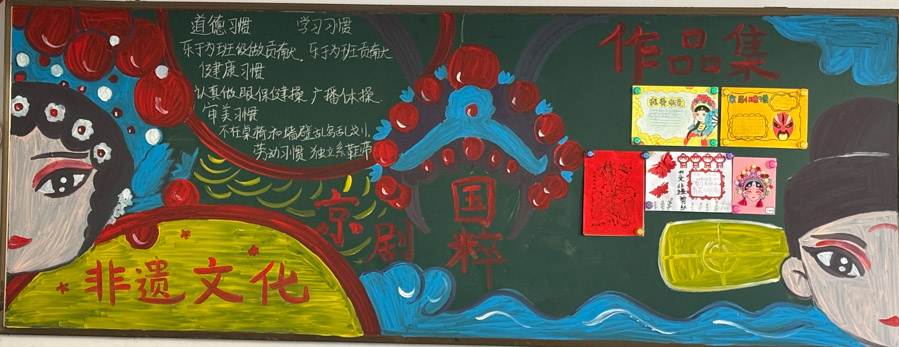 道德习惯 学习习惯
乐于为班级做贡献. 乐于为班贡献大
健康习惯
认真做眼保健操 广播体操
审美习惯
不在桌椅和墙壁乱写乱
劳动习惯 独立系鞋带
作品集
京剧
国粹
非遗文化